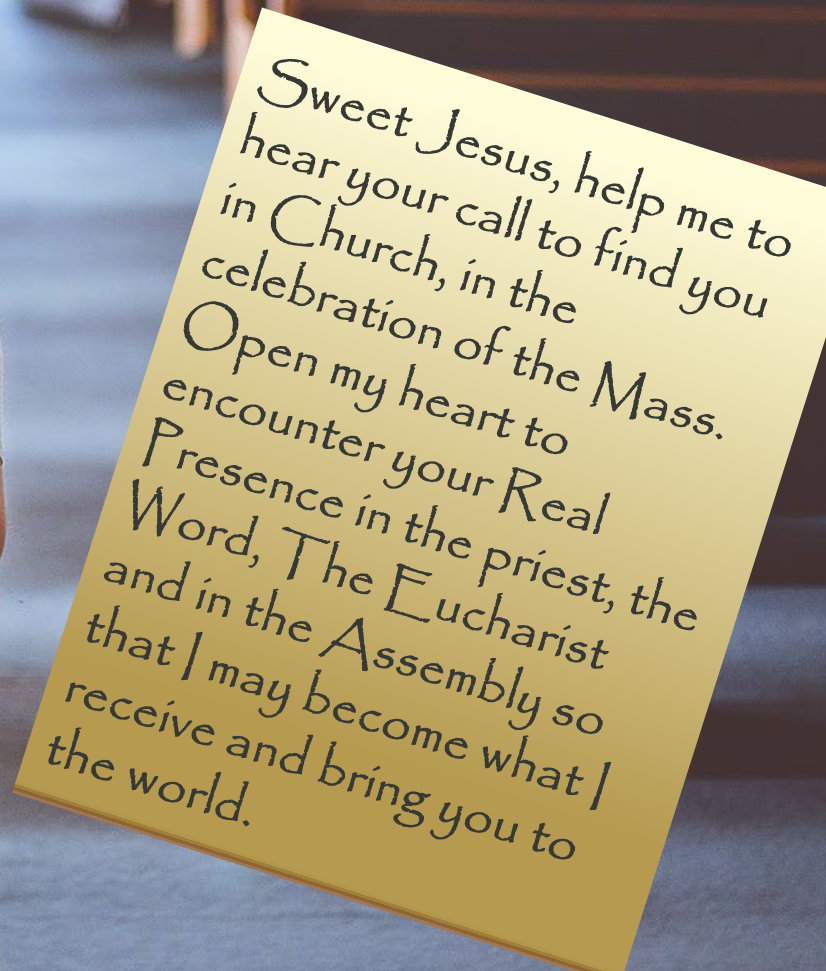 Sweet Jesus, help me to
hear your call to find you
in Church, in the
celebration of the Mass.
Open my heart to
encounter your Real
Presence in the priest, the
Word, The Eucharist
and in the Assembly so
that I may become what I
receive and bring you to
the world.